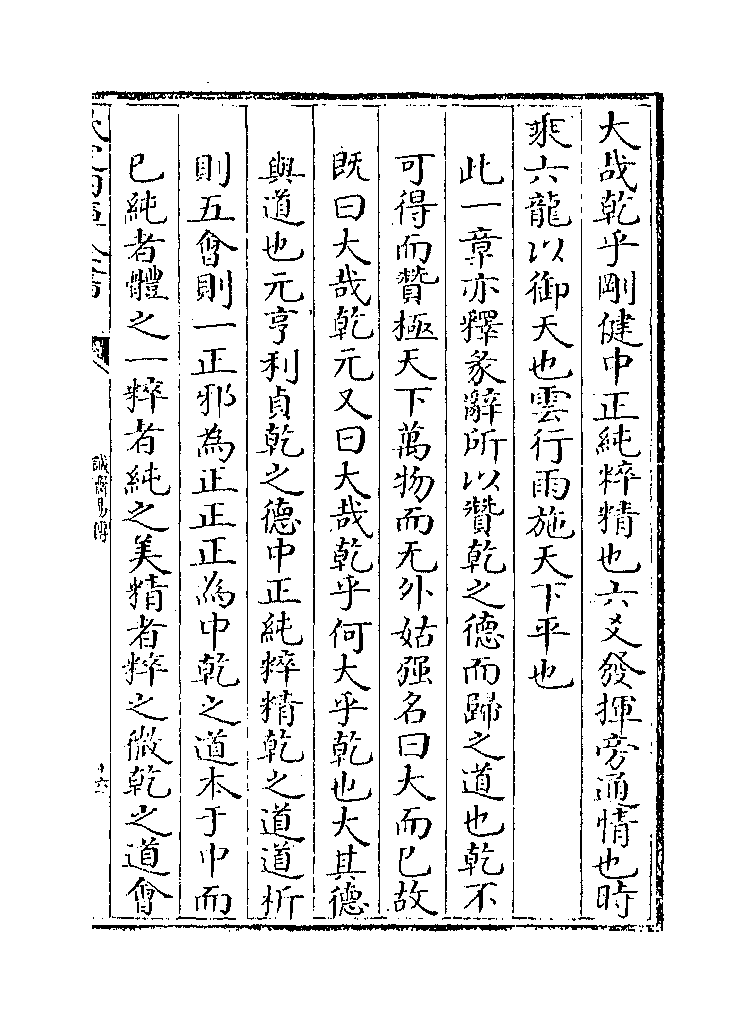 大哉乾乎剛健中正純粹精也六爻發揮旁通情也時
乘六龍以御天也雲行雨施天下平也
此一章亦釋彖辭所以贊乾之德而歸之道也乾不
可得而贊極天下萬物而无外姑强名曰大而已故
既曰大哉乾元又曰大哉乾乎何大乎乾也大其德
與道也元亨利貞乾之德中正純粹精乾之道道析
則五會則一正邪為正正正為中乾之道本于中而
已純者體之一粹者純之美精者粹之微乾之道會
誠齋易傳
十六